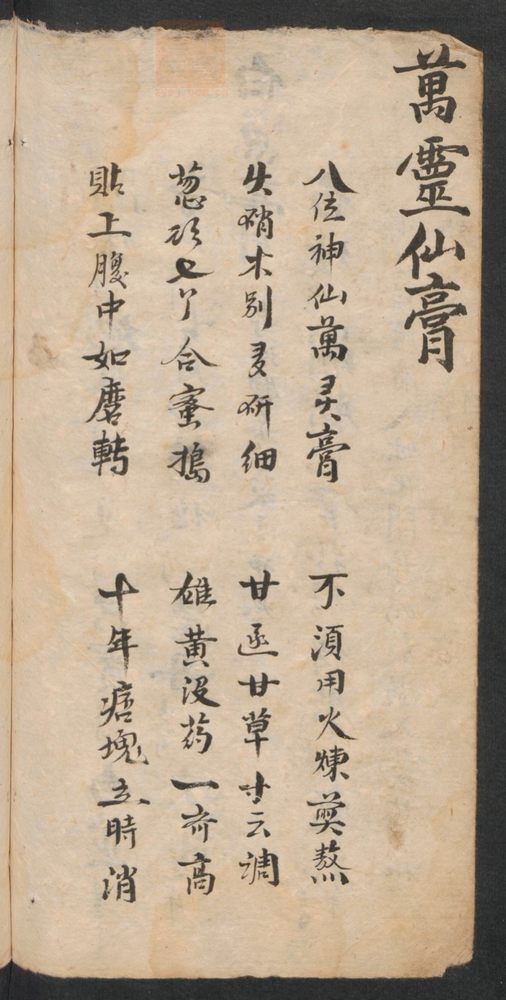 萬靈仙膏
八位神仙萬灵膏 不湏用火煉熬
硝木別多研細 甘遂甘草寸云調
葱七个合蜜搗 雄黃没药一斉高
貼上腹中如磨轉 十年痞塊立時消